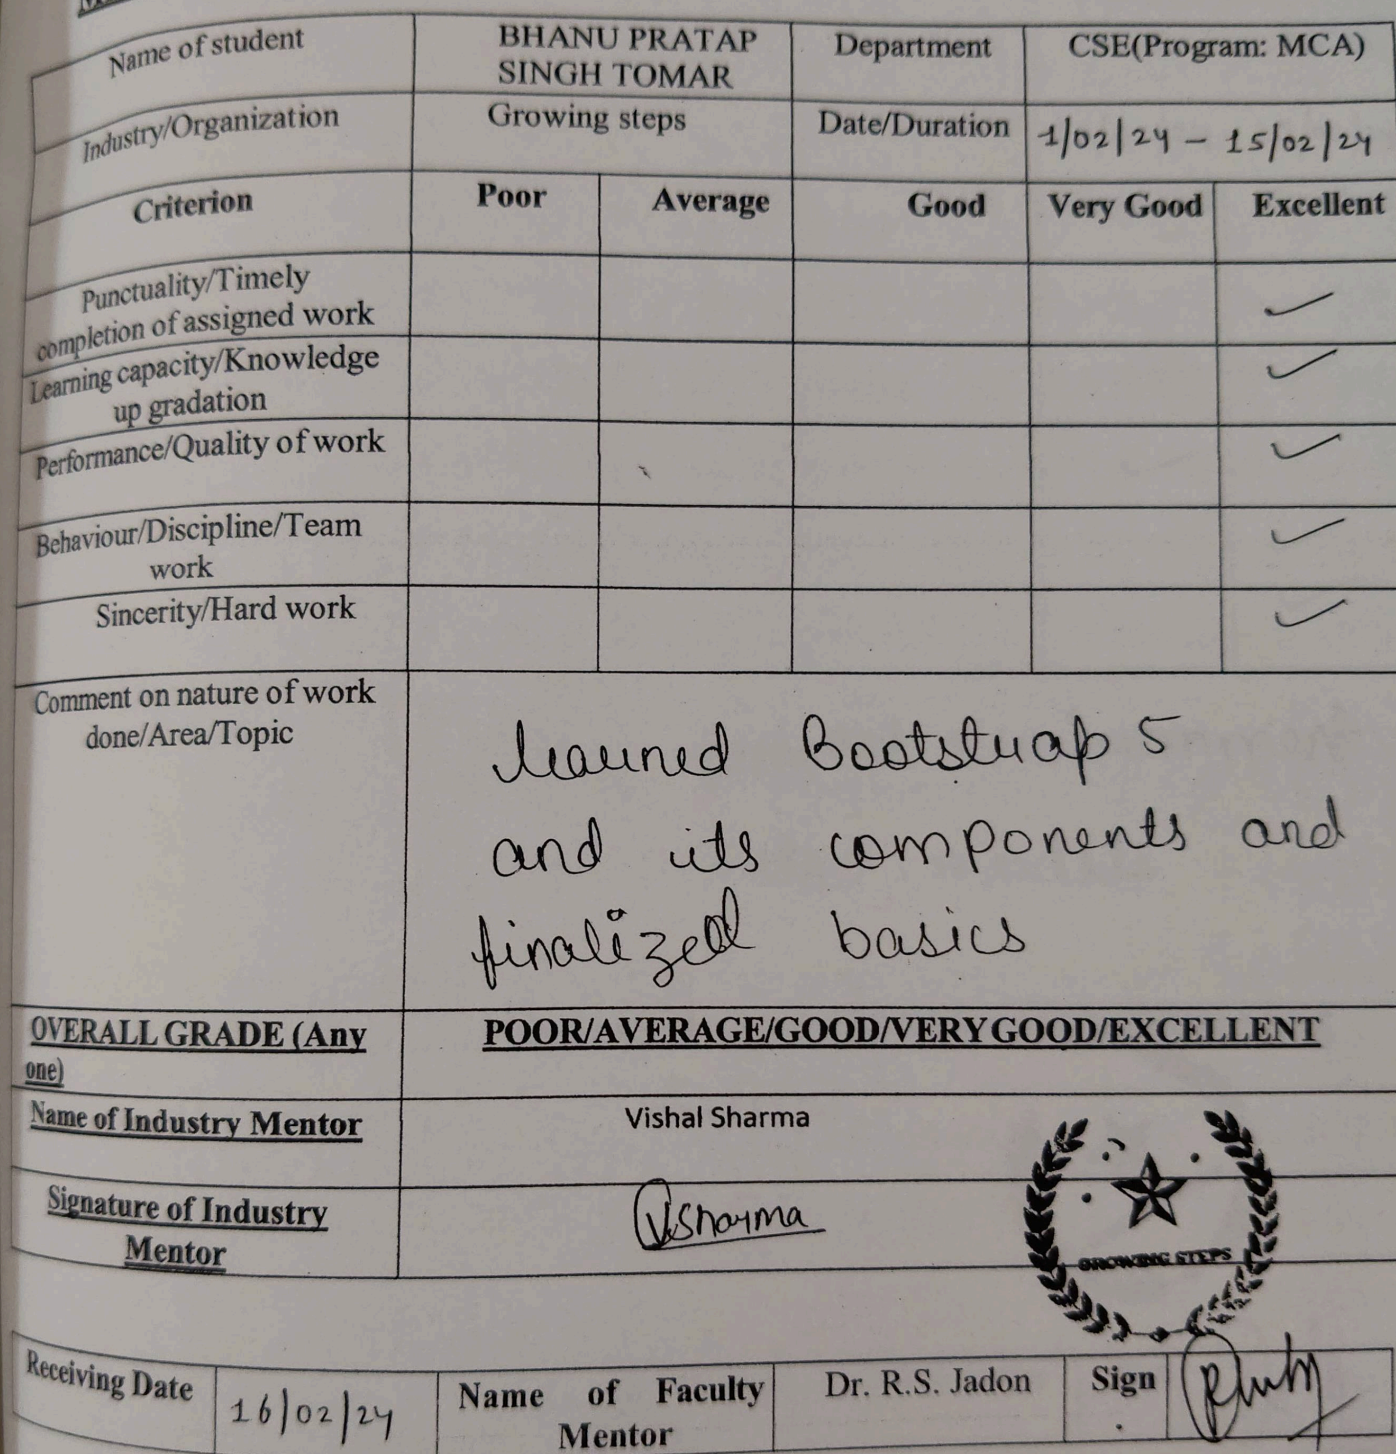 Name of student
BHANU PRATAP
SINGH TOMAR
Department
CSE(Program: MCA)
Industry/Organization
Growing steps
Date/Duration
1/02/24 – 15/02/24
Criterion
Poor
Average
Good
Very Good
Excellent
Punctuality/Timely
completion of assigned work
Learning capacity/Knowledge
up gradation
Performance/Quality of work
Behaviour/Discipline/Team
work
Sincerity/Hard work
Comment on nature of work
done/Area/Topic
learned Bootstrap 5
and its components and
finalized basics
OVERALL GRADE (Any
one)
POOR/AVERAGE/GOOD/VERY GOOD/EXCELLENT
Name of Industry Mentor
Vishal Sharma
Signature of Industry
Mentor
VSharma
GROWING STEPS
Receiving Date
16/02/24
Name of Faculty
Mentor
Dr. R.S. Jadon
Sign